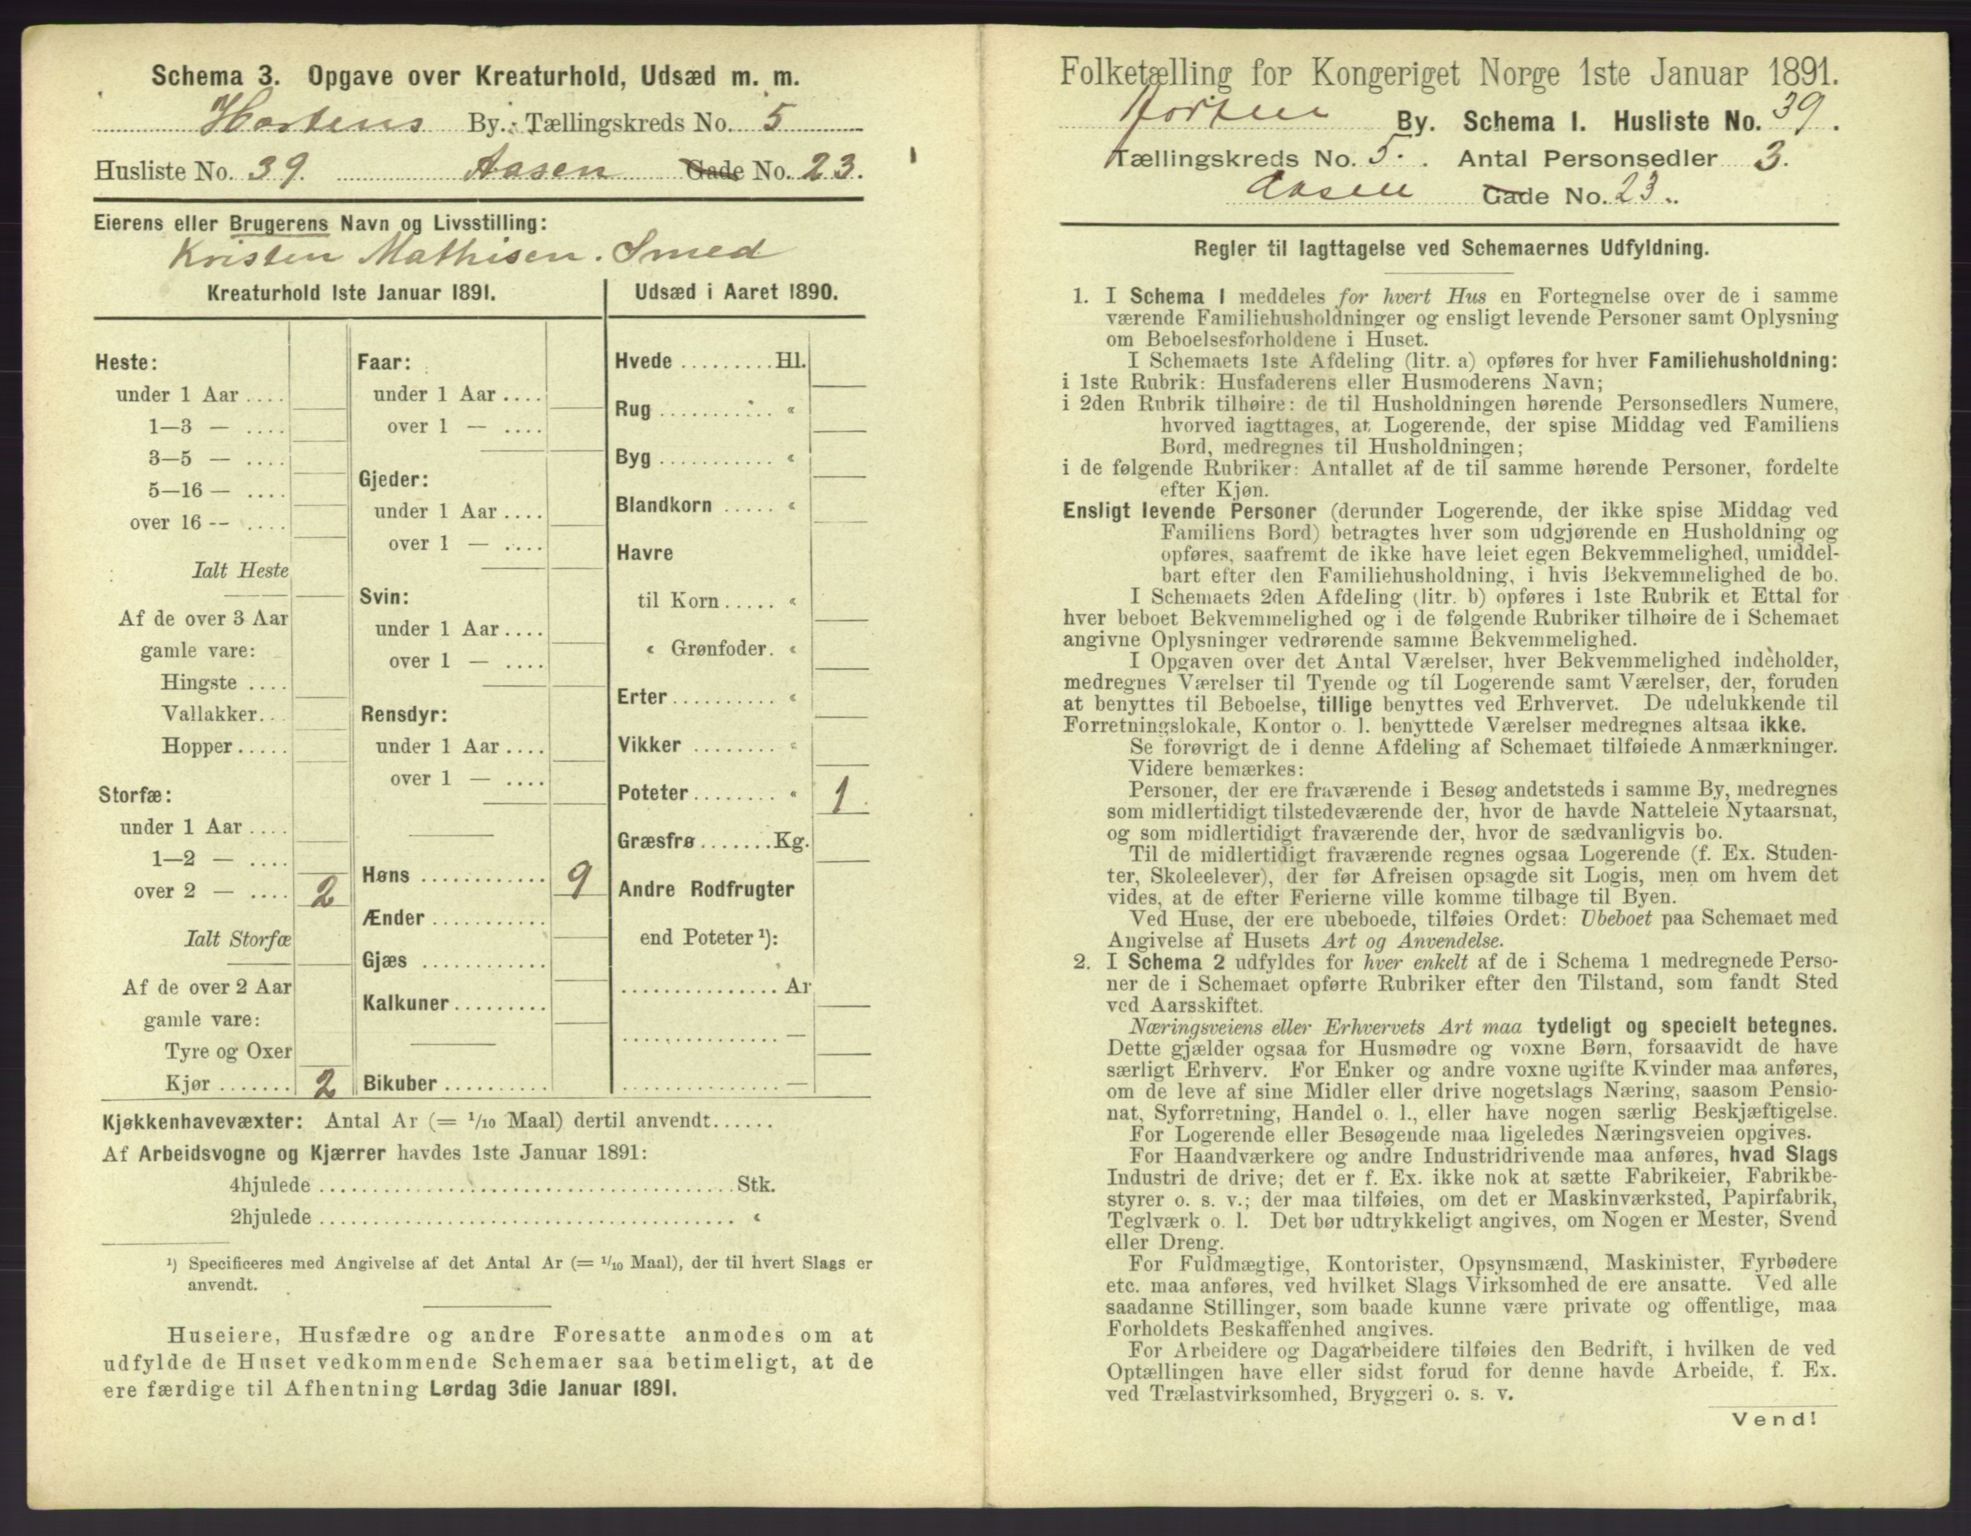 Schema 3. Opgave over Kreaturhold, Udsæd m. m.
Hortens By. Tællingskreds No. 5
Husliste No. 39. Aasen Gade No. 23.
Eierens eller Brugerens Navn og Livsstilling:
Kristen Mathisen. Smed
Kreaturhold 1ste Januar 1891.
Heste:
under 1 Aar ....
1—3 — ....
3—5 — ....
5—16 — ....
over 16 -- ....
Ialt Heste
Af de over 3 Aar
gamle vare:
Hingste ....
Vallakker...
Hopper.....
Storfæ:
under 1 Aar ....
1—2 — ....
over 2 — .... 2
Ialt Storfæ
Af de over 2 Aar
gamle vare:
Tyre og Oxer
Kjør ....... 2
Faar:
under 1 Aar ....
over 1 — ....
Gjeder:
under 1 Aar ....
over 1 — ....
Svin:
under 1 Aar ....
over 1 — ....
Rensdyr:
under 1 Aar ....
over 1 — ....
Høns ............ 9
Ænder ...........
Gjæs ............
Kalkuner..........
Bikuber ..........
Udsæd i Aaret 1890.
Hvede .........Hl.
Rug ........... «
Byg ........... «
Blandkorn ..... «
Havre
til Korn..... «
« Grønfoder. «
Erter.......... «
Vikker ........ «
Poteter........ « 1
Græsfrø.......Kg.
Andre Rodfrugter
end Poteter ¹):
...............Ar
............... —
............... —
Kjøkkenhavevæxter: Antal Ar (= 1/10 Maal) dertil anvendt......
Af Arbeidsvogne og Kjærrer havdes 1ste Januar 1891:
4hjulede ..............................................Stk.
2hjulede .............................................. «
¹) Specificeres med Angivelse af det Antal Ar (= 1/10 Maal), der til hvert Slags er
anvendt.
Huseiere, Husfædre og andre Foresatte anmodes om at
udfylde de Huset vedkommende Schemaer saa betimeligt, at de
ere færdige til Afhentning Lørdag 3die Januar 1891.
Folketælling for Kongeriget Norge 1ste Januar 1891.
Horten By. Schema I. Husliste No. 39.
Tællingskreds No. 5. Antal Personsedler 3.
Aasen Gade No. 23.
Regler til Iagttagelse ved Schemaernes Udfyldning.
1. I Schema I meddeles for hvert Hus en Fortegnelse over de i samme
værende Familiehusholdninger og ensligt levende Personer samt Oplysning
om Beboelsesforholdene i Huset.
I Schemaets 1ste Afdeling (litr. a) opføres for hver Familiehusholdning:
i 1ste Rubrik: Husfaderens eller Husmoderens Navn;
i 2den Rubrik tilhøire: de til Husholdningen hørende Personsedlers Numere,
hvorved iagttages, at Logerende, der spise Middag ved Familiens
Bord, medregnes til Husholdningen;
i de følgende Rubriker: Antallet af de til samme hørende Personer, fordelte
efter Kjøn.
Ensligt levende Personer (derunder Logerende, der ikke spise Middag ved
Familiens Bord) betragtes hver som udgjørende en Husholdning og
opføres, saafremt de ikke have leiet egen Bekvemmelighed, umiddel-
bart efter den Familiehusholdning, i hvis Bekvemmelighed de bo.
I Schemaets 2den Afdeling (litr. b) opføres i 1ste Rubrik et Ettal for
hver beboet Bekvemmelighed og i de følgende Rubriker tilhøire de i Schemaet
angivne Oplysninger vedrørende samme Bekvemmelighed.
I Opgaven over det Antal Værelser, hver Bekvemmelighed indeholder,
medregnes Værelser til Tyende og til Logerende samt Værelser, der, foruden
at benyttes til Beboelse, tillige benyttes ved Erhvervet. De udelukkende til
Forretningslokale, Kontor o. l. benyttede Værelser medregnes altsaa ikke.
Se forøvrigt de i denne Afdeling af Schemaet tilføiede Anmærkninger.
Videre bemærkes:
Personer, der ere fraværende i Besøg andetsteds i samme By, medregnes
som midlertidigt tilstedeværende der, hvor de havde Natteleie Nytaarsnat,
og som midlertidigt fraværende der, hvor de sædvanligvis bo.
Til de midlertidigt fraværende regnes ogsaa Logerende (f. Ex. Studen-
ter, Skoleelever), der før Afreisen opsagde sit Logis, men om hvem det
vides, at de efter Ferierne ville komme tilbage til Byen.
Ved Huse, der ere ubeboede, tilføies Ordet: Ubeboet paa Schemaet med
Angivelse af Husets Art og Anvendelse.
2. I Schema 2 udfyldes for hver enkelt af de i Schema 1 medregnede Perso-
ner de i Schemaet opførte Rubriker efter den Tilstand, som fandt Sted
ved Aarsskiftet.
Næringsveiens eller Erhvervets Art maa tydeligt og specielt betegnes.
Dette gjælder ogsaa for Husmødre og voxne Børn, forsaavidt de have
særligt Erhverv. For Enker og andre voxne ugifte Kvinder maa anføres,
om de leve af sine Midler eller drive nogetslags Næring, saasom Pensio-
nat, Syforretning, Handel o. l., eller have nogen særlig Beskjæftigelse.
For Logerende eller Besøgende maa ligeledes Næringsveien opgives.
For Haandværkere og andre Industridrivende maa anføres, hvad Slags
Industri de drive; det er f. Ex. ikke nok at sætte Fabrikeier, Fabrikbe-
styrer o. s. v.; der maa tilføies, om det er Maskinværksted, Papirfabrik,
Teglværk o. l. Det bør udtrykkeligt angives, om Nogen er Mester, Svend
eller Dreng.
For Fuldmægtige, Kontorister, Opsynsmænd, Maskinister, Fyrbødere
etc. maa anføres, ved hvilket Slags Virksomhed de ere ansatte. Ved alle
saadanne Stillinger, som baade kunne være private og offentlige, maa
Forholdets Beskaffenhed angives.
For Arbeidere og Dagarbeidere tilføies den Bedrift, i hvilken de ved
Optællingen have eller sidst forud for denne havde Arbeide, f. Ex.
ved Trælastvirksomhed, Bryggeri o. s. v.
Vend!